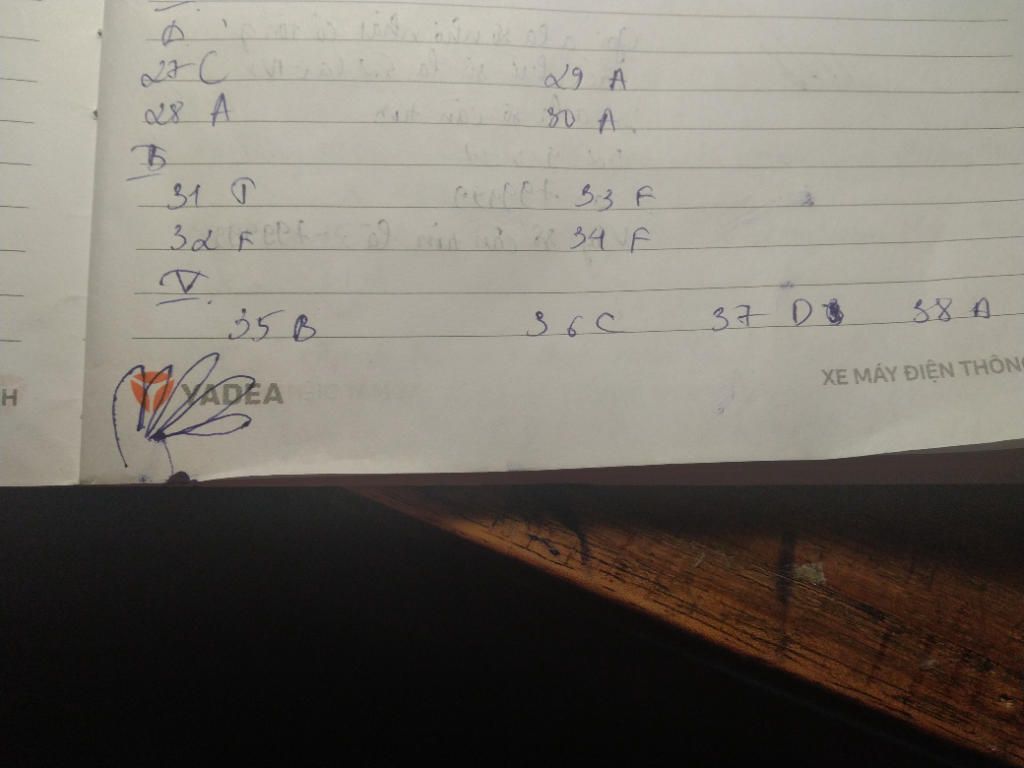 A
27 C 29 A
28 A 30 A
B
31 T 33 F
32 F 34 F
V
35 B 36 C 37 D 38 A
H YADEA XE MÁY ĐIỆN THÔNG